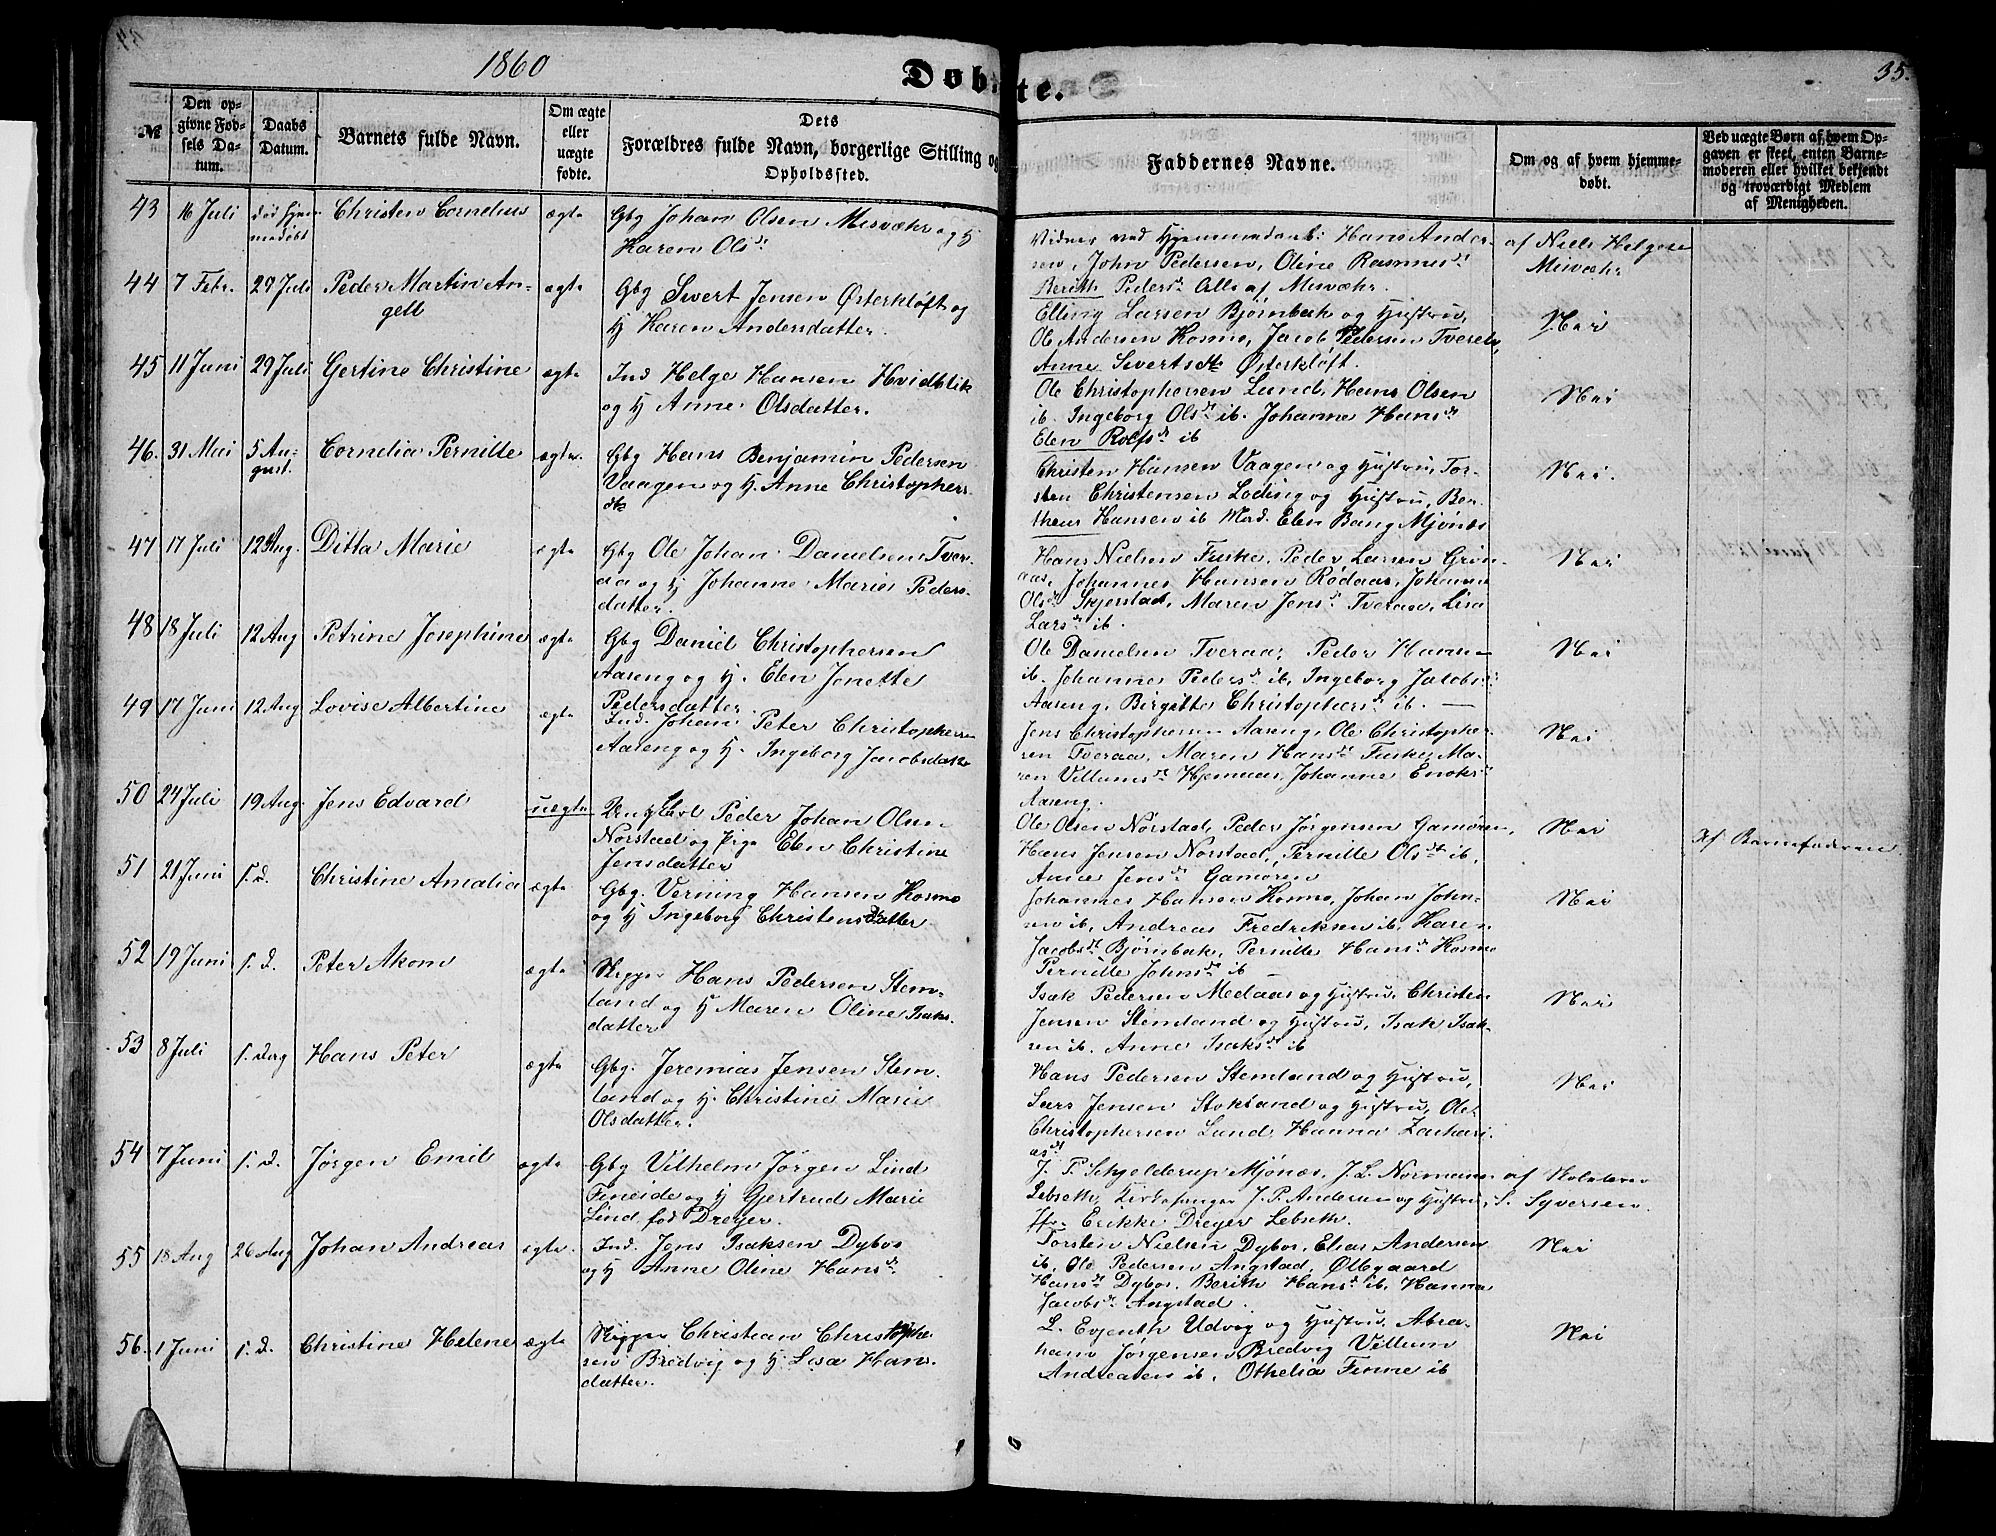 1860
Døbte.
35.
№
Den opgivne Fødsels Datum.
Daabs Datum.
Barnets fulde Navn.
Om ægte eller uægte fødte.
Dets Forældres fulde Navn, borgerlige Stilling og Opholdssted.
Faddernes Navne.
Om og af hvem hjemmedøbt.
Ved uægte Børn af hvem Opgaven er skeet, enten Barnemoderen eller hvilket bekjendt og troværdigt Medlem af Menigheden.
43 16 Juli død hjemmedøbt Christen Cornelius ægte
Gbg Johan Olsen Misvæhr og H
Karen Olsdt
Vidner ved Hjemmedaab: Hans Andersen, John Pedersen, Oline Rasmusdt
Berith Pedersdt Alle af Misvæhr.
af Niels Helgesen
Misvæhr
44 7 Febr. 29 Juli Peder Martin Angell ægte
Gbg Sivert Jensen Østerkløft og
H Karen Andersdatter.
Elling Larsen Bjørnbak og Hustru,
Ole Andersen Kosmo, Jacob Pedersen Tveraa,
Anne Sivertsdtr Østerkløft.
Nei
45 11 Juni 29 Juli Gertine Christine ægte
Ind Helge Hansen Hvidblik
og H Anne Olsdatter.
Ole Christophersen Lund, Hans Olsen
ib. Ingeborg Olsdt ib. Johanna Hansdt
Elen Rolfsdt ib
Nei
46. 31 Mai 5 August. Cornelia Pernille ægte.
Gbg Hans Benjamin Pedersen
Vaagen og H. Anne Christophersdtr
Christen Hansen Vaagen og Hustru, Torsten Christensen Loding og Hustru, Bertheus Hansen ib Mad. Elen Bang Mjønæs
Nei.
47 17 Juli 12 Aug. Ditta Marie ægte
Gbg Ole Johan Danielsen Tveraa og H Johanne Marie Pedersdatter.
Hans Nielsen Fuske, Peder Larsen Grønaas, Johannes Hansen Rødaas, Johanna
Olsdt Skjerstad, Maren Jensdt Tveraa, Lisa
Larsdt ib.
Nei
48 18 Juli 12 Aug Petrine Josephine ægte
Gbg Daniel Christophersen
Aaseng og H. Elen Jonette
Pedersdatter
Ole Danielsen Tveraa, Peder Hansen
ib. Johanne Pedersdt ib, Ingeborg Jacobsdt
Aaseng, Birgitte Christophersdt ib.
Nei
49 17 Juni 12 Aug Lovise Albertine ægte
Ind. Johan Peter Christophersen
Aaseng og H. Ingeborg Jacobsdatter
Jens Christophersen Aaseng, Ole Christophersen Tveraa, Maren Hansdt Fuske, Maren Villumsdt Hjemaas, Johanne Enoksdt
Aaseng.
Nei
50 24 Juli 19 Aug. Jens Edvard uægte
Ungkarl Peder Johan Olsen
Norstad og Pige Elen Christine
Jensdatter
Ole Olsen Nørstad, Peder Jørgensen Gamøren,
Hans Jensen Norstad, Pernille Olsdt ib.
Anne Jensdt Gamøren
Nei
Af Barnefaderen
51 21 Juni s.d. Christine Amalia ægte
Gbg. Verning Hansen Kosmo
og H Ingeborg Christensdatter.
Johannes Hansen Kosmo, Johan Johnsen ib, Andreas Fredriksen ib, Karen
Jacobsdt Bjørnbak, Pernille Hansdt Kosmo
Pernille Johnsdt ib
Nei
52 19 Juni s.d. Peter Akom ægte
Skipper Hans Pedersen Stemland og H Maren Oline Isaksdatter
Isak Pedersen Medaas og Hustru, Christen
Jensen Stemland og Hustru, Isak Isaksen ib. Anne Isaksdt ib
Nei
53 8 Juli s. Dag Hans Peter ægte
Gbg. Jeremias Jensen Stemland og H. Christine Marie
Olsdatter.
Hans Pedersen Stemland og Hustru,
Lars Jensen Stokland og Hustru, Ole
Christophersen Lund, Hanna Zachariasdt
Nei
54 7 Juni s.d. Jørgen Emil ægte
Gbg Vilhelm Jørgen Lind
Fineide og H Gjertrud Marie
Lind, fød Dreyer.
J. P. Schjelderup Mjønæs, J. L. Normann
Lebseth, Kirkesanger J. P. Andersen og Hustru,
Jfr. Erikke Dreyer Lebseth.
af Skolelærer
S. Syversen
55 18 Aug 26 Aug Johan Andreas ægte.
Ind. Jens Isaksen Dybos
og H Anne Oline Hansdt
Torsten Nielsen Dybos, Elias Andersen
ib. Ole Pedersen Angstad, Ollegaard
Hansdt Dybos, Berith Hansdt ib. Hanna
Jacobsdt Angstad.
Nei
56. 1 Juni s.d. Christine Helene ægte
Skipper Christian Christophersen Bredvig og H. Lisa Hansdatter.
L. Evjenth Udvig og Hustru, Abraham Jørgensen Bredvig Villum
Andreasen ib. Othelia Finne ib
Nei